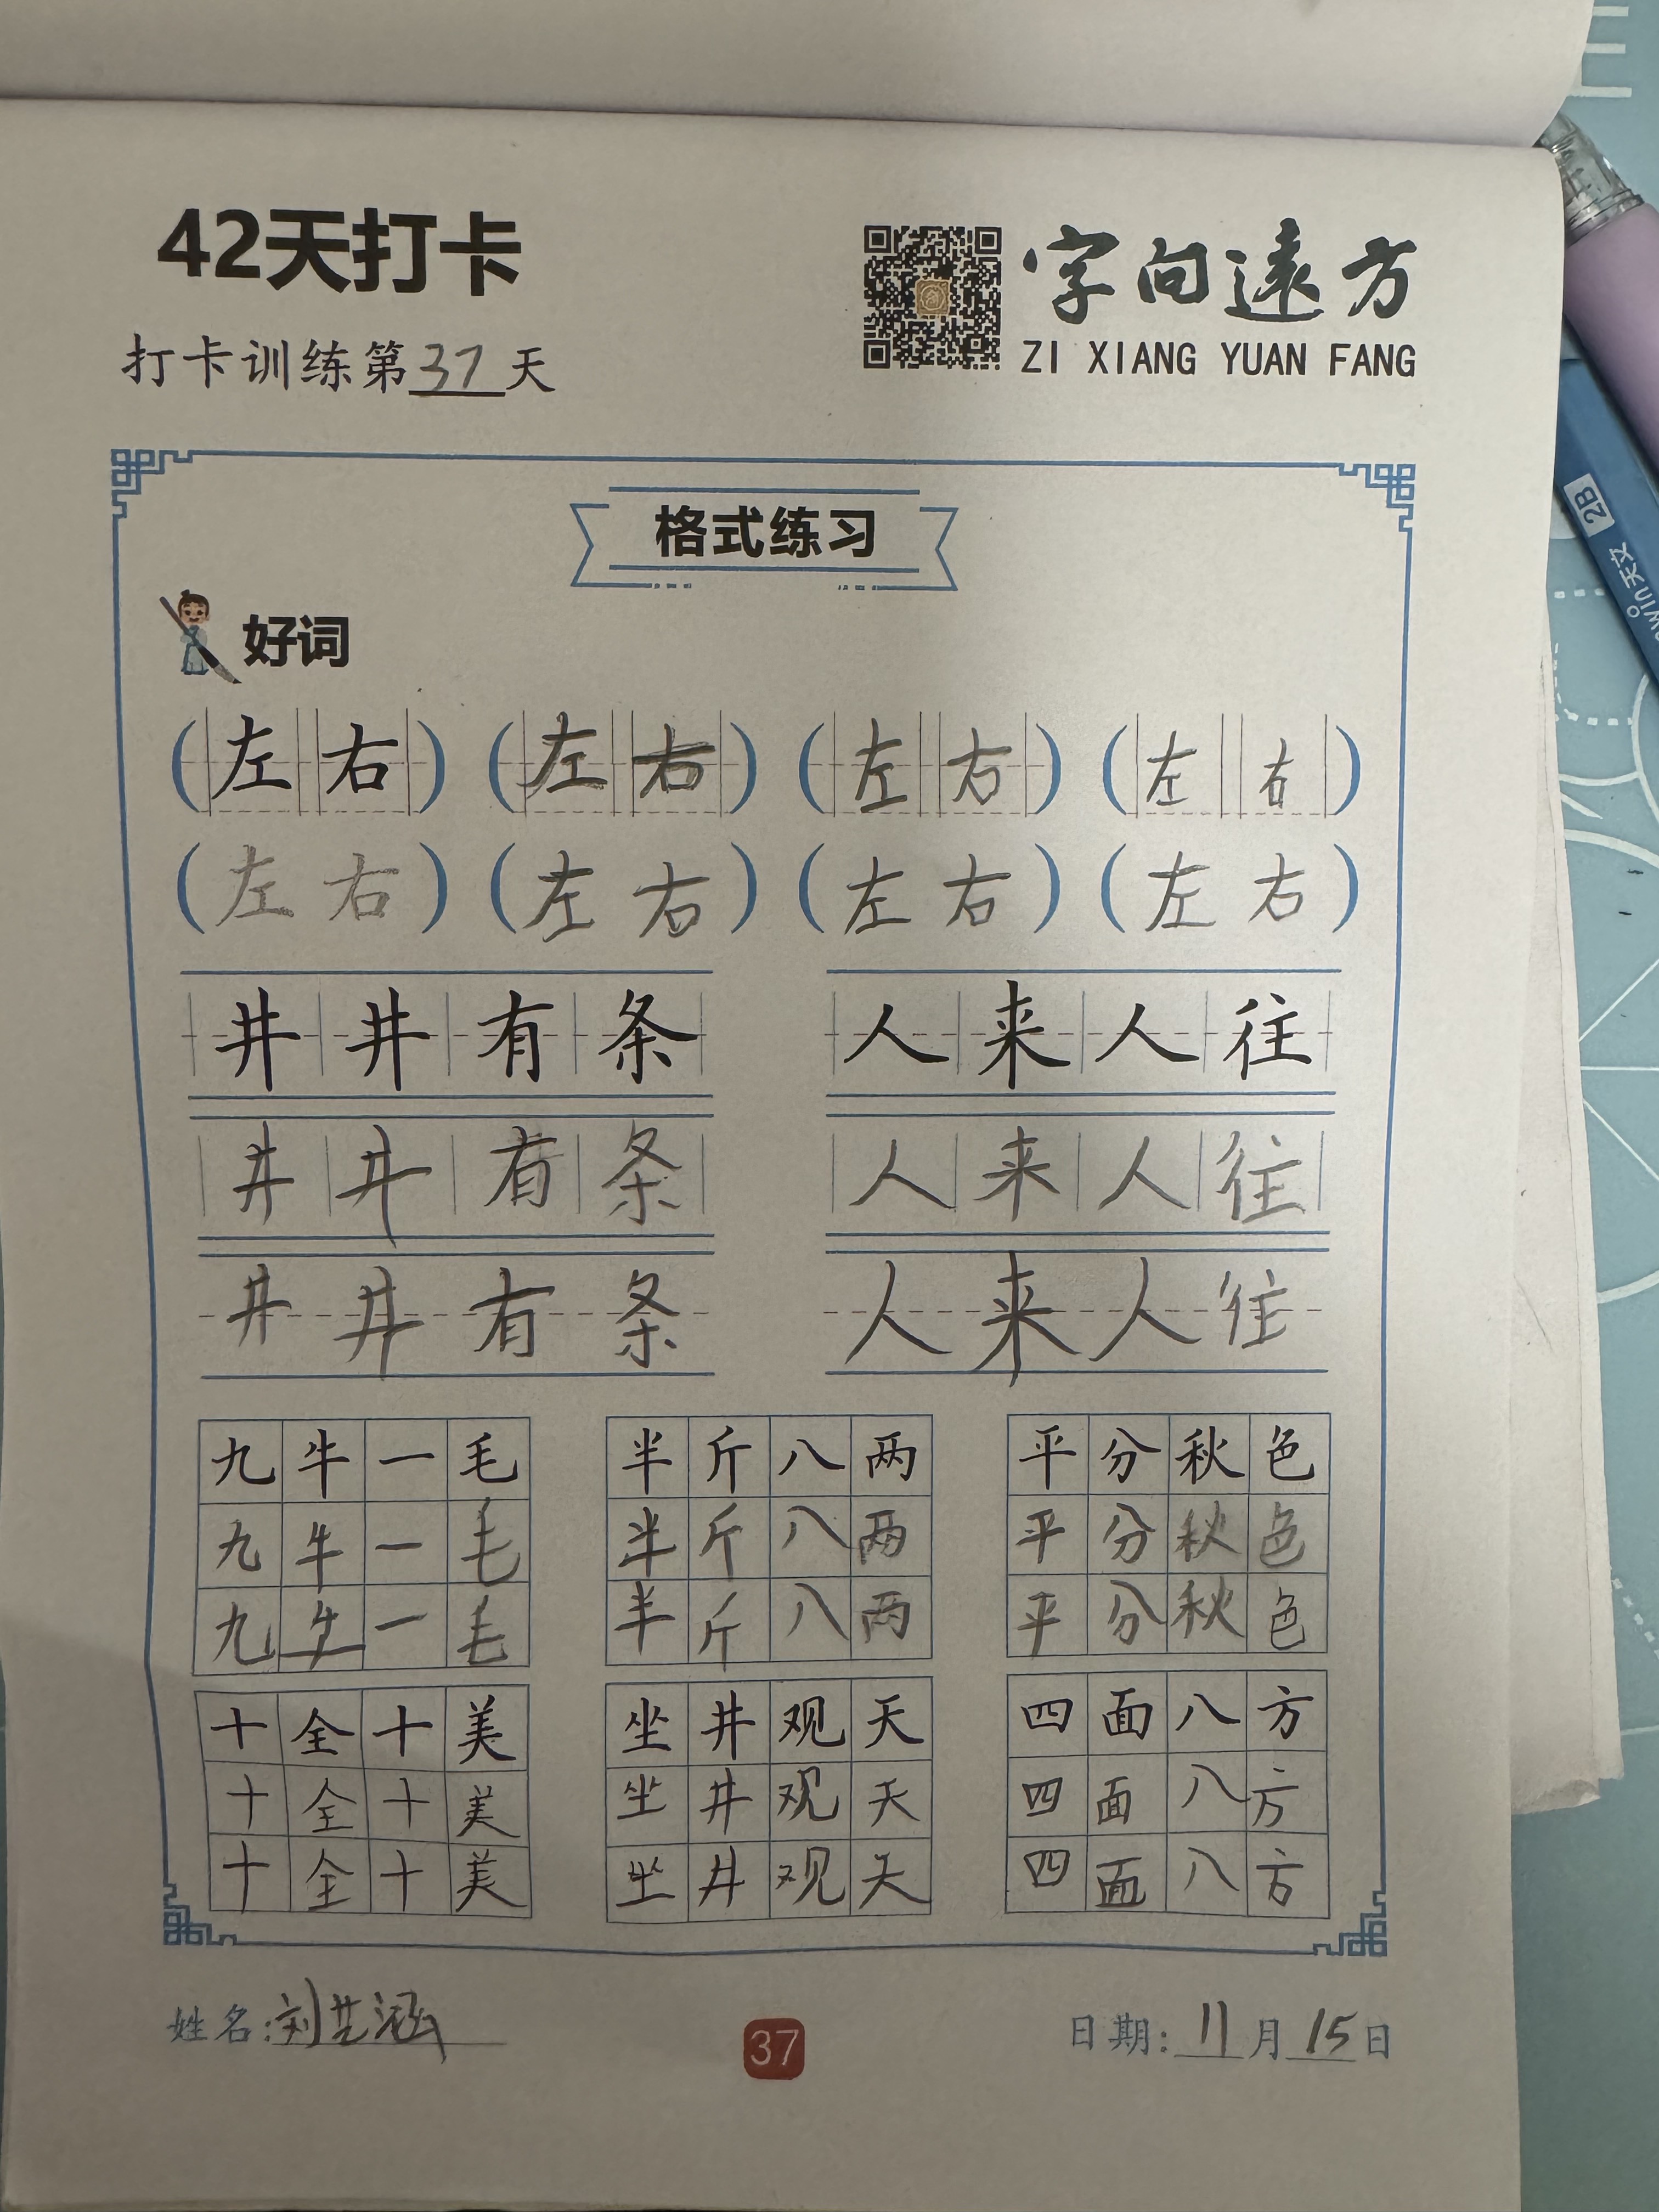 42天打卡
字向遠方
ZI XIANG YUAN FANG
打卡训练第37天
格式练习
好词
(左右) (左右) (左右) (左右)
(左右) (左右) (左右) (左右)
井井有条 人来人往
井井有条 人来人往
井井有条 人来人往
九牛一毛 半斤八两 平分秋色
九牛一毛 半斤八两 平分秋色
九牛一毛 半斤八两 平分秋色
十全十美 坐井观天 四面八方
十全十美 坐井观天 四面八方
十全十美 坐井观天 四面八方
姓名:刘艺涵
37
日期:11月15日
2B
win天文